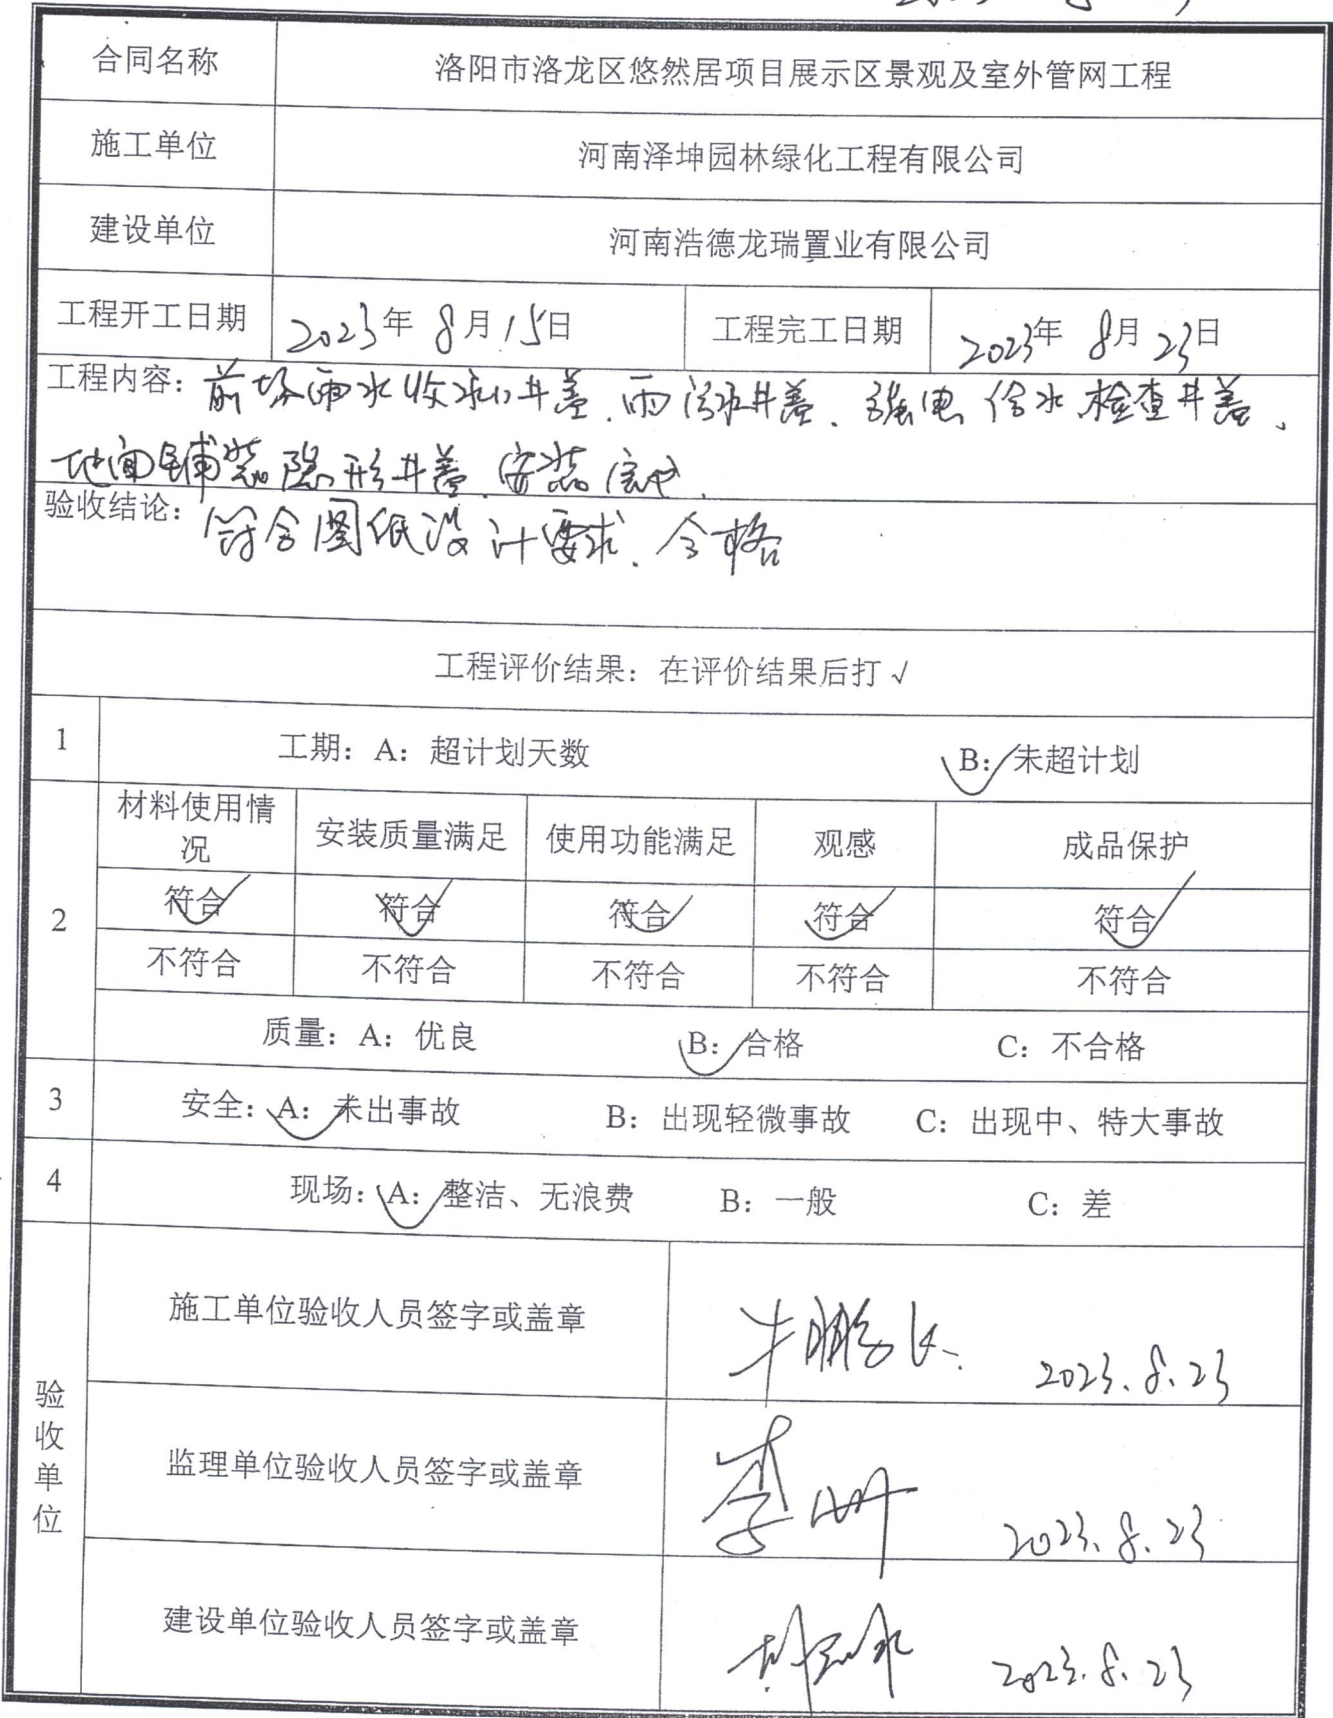 合同名称 洛阳市洛龙区悠然居项目展示区景观及室外管网工程
施工单位 河南泽坤园林绿化工程有限公司
建设单位 河南浩德龙瑞置业有限公司
工程开工日期 2023年 8月15日 工程完工日期 2023年 8月23日
工程内容：前场雨水收水口井盖、雨污水井盖、强电 给水 检查井盖、
地面铺装隐形井盖、安装完成、
验收结论：符合图纸设计要求、合格
工程评价结果：在评价结果后打√
1 工期：A：超计划天数 B：√未超计划
材料使用情况 安装质量满足 使用功能满足 观感 成品保护
2 符合√ 符合√ 符合√ 符合√ 符合√
不符合 不符合 不符合 不符合 不符合
质量：A：优良 B：√合格 C：不合格
3 安全：A：√未出事故 B：出现轻微事故 C：出现中、特大事故
4 现场：A：√整洁、无浪费 B：一般 C：差
验收单位
施工单位验收人员签字或盖章 2023.8.23
监理单位验收人员签字或盖章 李 2023.8.23
建设单位验收人员签字或盖章 2023.8.23